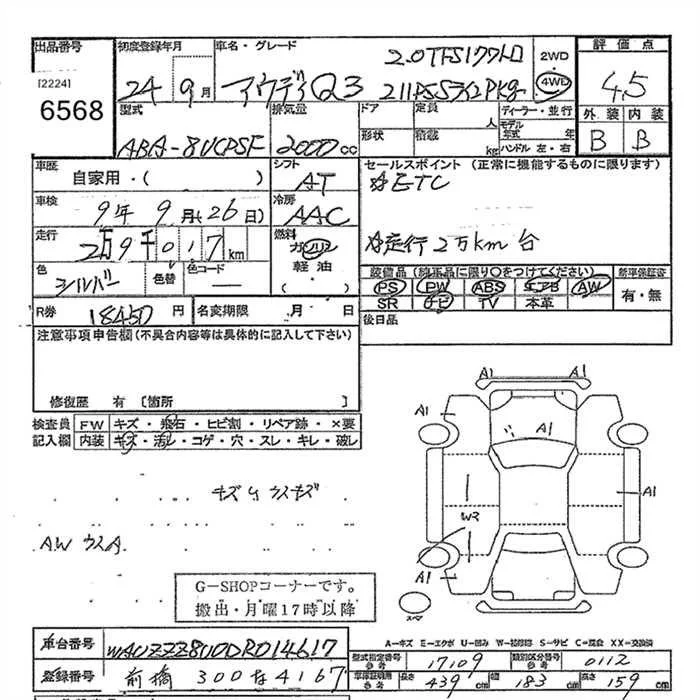 出品番号 初度登録年月 車名・グレード 2.0TFSIクワトロ 2WD 評価点
[2224] 24年 9月 アウディQ3 211PS Sライン PKg 4WD 4.5
6568 型式 排気量 ドア 定員 人 ディーラー・並行 外装 内装
ABA-8UCPSF 2000cc 形状 積載 kg モデル年式 年 ハンドル 左・右 B B
車歴 自家用・( ) シフト AT セールスポイント(正常に機能するものに限ります)
☆ETC
車検 9年 9月(26日) 冷房 AAC
走行 2万9千017km 燃料 ガソリン 軽油 ( ・ ) ☆走行2万km台
色 シルバー 色替 色コード 装備品(純正品に限り○をつけてください) 新車保証書
PS PW ABS エアB AW 有・無
SR ナビ TV 本革
R券 18450円 名変期限 月 日 後日品
注意事項申告欄(不具合内容等は具体的に記入して下さい)
修復歴 有 〔箇所 〕
検査員 FW キズ・飛石・ヒビ割・リペア跡・×要
記入欄 内装 キズ・汚し・コゲ・穴・スレ・キレ・破レ
A1 A1
A1 A1 A1
A1
キズ
W2
AWウスA
A1
スペア
G-SHOPコーナーです。
搬出・月曜17時以降
A=キズ E=エクボ U=凹み W=補修跡 S=サビ C=腐食 XX=交換済
車台番号 WAUZZZ8U0DR014617
型式指定番号 参考 17109 類別区分番号 参考 0112
登録番号 前橋 300 な 4167
車庫証明用 参考 長さ 439cm 幅 183cm 高さ 159cm